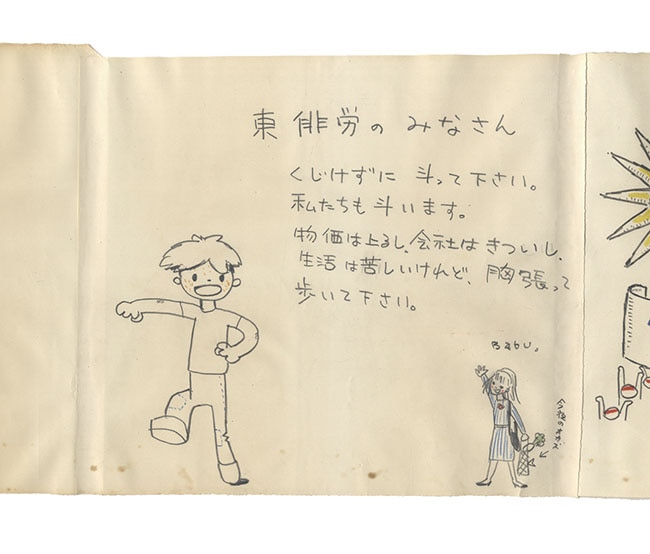 東俳労の みなさん
くじけずに 斗って下さい。
私たちも斗います。
物価は上るし、会社は きついし、
生活は苦しいけれど、胸張って
歩いて下さい。
今夜のオカズ